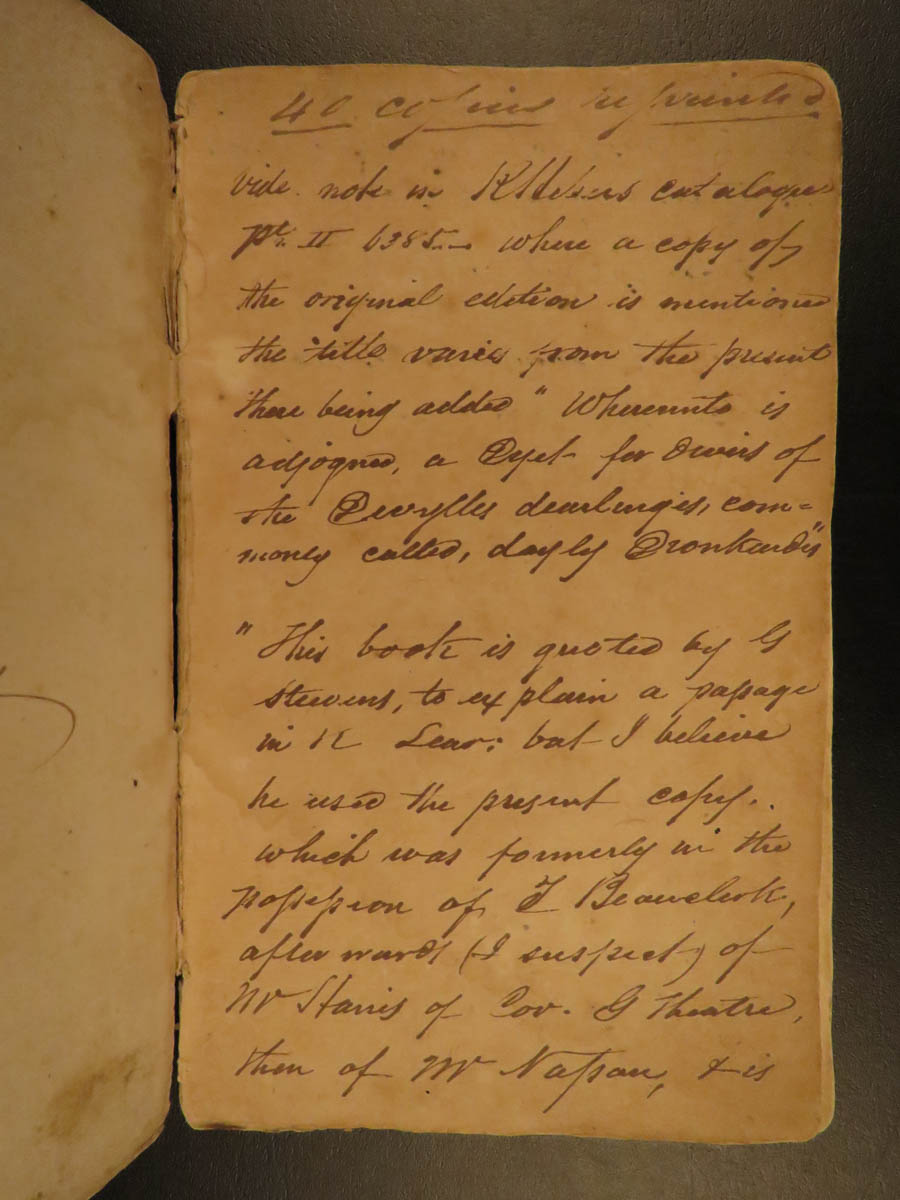 40 copies reprinted
vide note in R Hebers catalogue
Pt. II 6385 — where a copy of
the original edition is mentioned
the title varies from the present
there being added " Whereunto is
adjoyned, a Dyet for Divers of
the Devylles dearlinges, com=
monly called, dayly Dronkardes"
"This book is quoted by G
Stevens, to explain a passage
in K Lear: but I believe
he used the present copy.
which was formerly in the
possession of T Beauclerk,
afterwards (I suspect) of
Mr Harris of Cov. G Theatre,
then of Mr Nassau, & is